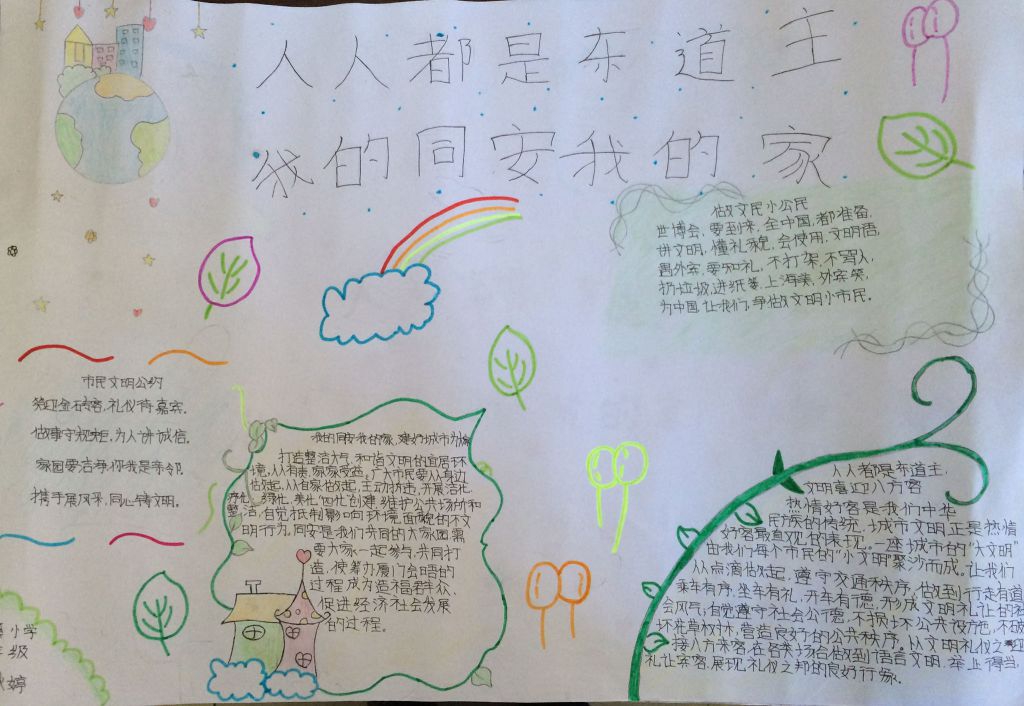 人人都是东道主
我的同安我的家
做文民小公民
世博会，要到来，全中国，都准备，
讲文明，懂礼貌，会使用，文明语，
遇外宾，要知礼，不打架，不骂人，
扔垃圾，进纸篓，上海美，外宾笑，
为中国，让我们，争做文明小市民。
市民文明公约
礼仪待嘉宾，
做事守规矩，为人讲诚信，
家园要洁净，你我是亲邻，
携手展风采，同心铸文明。
我的同安我的家，建好城市为
打造整洁大气、和谐文明的宜居环
境，人人有责，家家受益，广大市民要从身边
做起，从自家做起，主动打造，开展洁化、
序化、绿化、美化"四化"创建，维护公共场所和
整洁，自觉抵制影响环境面貌的不文
明行为。同安是我们共同的大家园，需
要大家一起参与，共同打
造，使筹办厦门会明的
过程成为造福群众、
促进经济社会发展
的过程。
人人都是东道主，
文明喜迎八方客
热情好客是我们中华
民族的传统，城市文明正是热情
好客最直观的表现。一座城市的"大文明"
由我们每个市民的"小文明"聚沙而成。让我们
从点滴做起，遵守交通秩序，做到行走有道
乘车有序，坐车有礼，开车有德，形成文明礼让的社
会风气；自觉遵守社会公德，不损坏公共设施，不破
坏花草树木，营造良好的公共秩序。以文明礼仪之
接八方来客，在各类场合做到语言文明，举止得当，
礼让宾客，展现礼仪之邦的良好形象。
小学
年级
婷